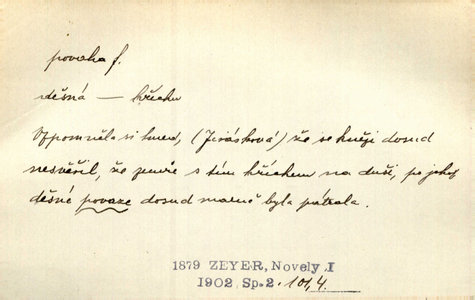 povaha f.
děsná — hříchu
Vzpomněla si hned, (Jirásková) že se knězi dosud
nesvěřil, že zemře s tím hříchem na duši, po jehož
děsné povaze dosud marně byla pátrala.
1879 ZEYER, Novely I
1902 Sp. 2. 101,4